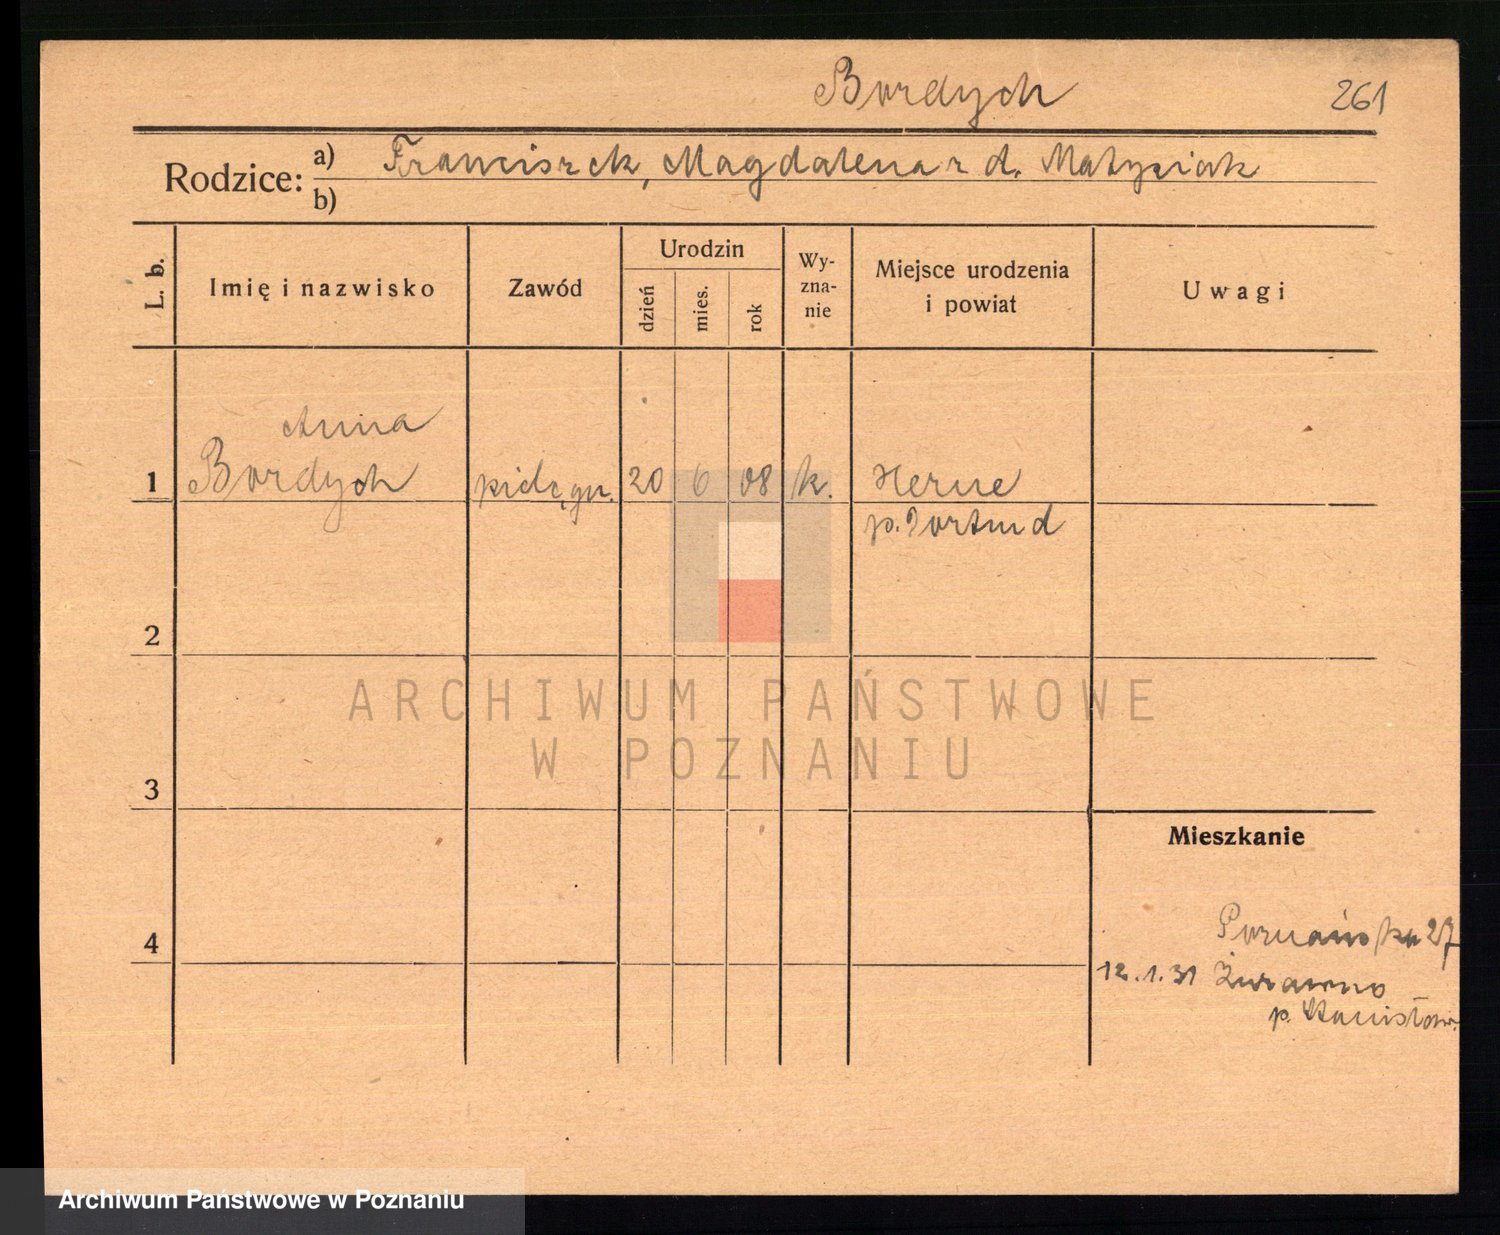 Bordych
261
Rodzice:
a) Franciszek, Magdalena z d. Matysiak
b)
L. b.
Imię i nazwisko
Zawód
Urodzin
dzień
mies.
rok
Wy-
zna-
nie
Miejsce urodzenia
i powiat
Uwagi
Anna
1 Bordych pielęgn. 20 6 08 k. Herne
p. Dortmund
2
3
4
Mieszkanie
Poznańska 27
12.1.31 Żurawno
p. Stanisław.
ARCHIWUM PAŃSTWOWE
W POZNANIU
Archiwum Państwowe w Poznaniu